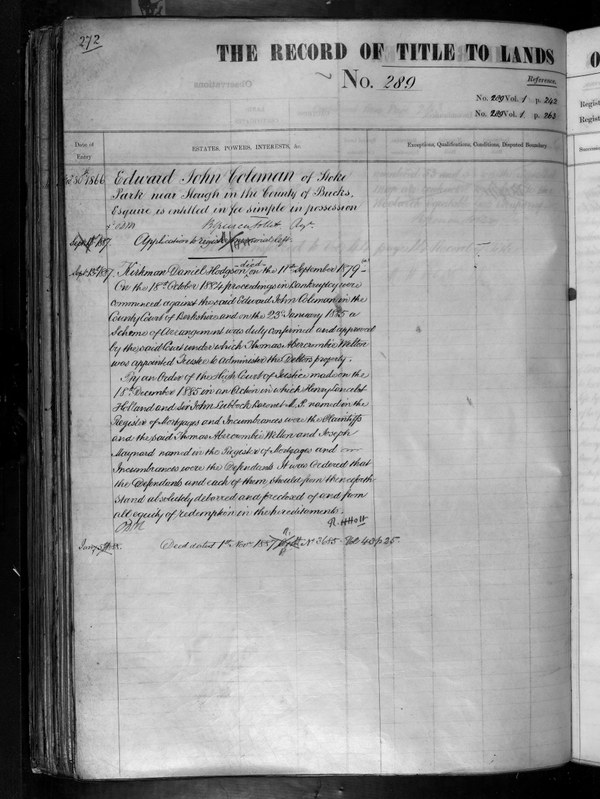 272
THE RECORD OF TITLE TO LANDS
No. 289
Reference.
No. 289 Vol. 1 p. 242
No. 289 Vol. 1 p. 263
Date of Entry
ESTATES, POWERS, INTERESTS, &c
Exceptions, Qualifications, Conditions, Disputed Boundary
30th 1866
Edward John Coleman of Stoke
Park near Slough in the County of Bucks,
Esquire is entitled in fee simple in possession
Brent Follett Regr.
Application to register left
Sept. 13th 1887.
Kirkman Daniel Hodgson died on the 11th September 1879
On the 18th October 1884 proceedings in Bankruptcy were
commenced against the said Edward John Coleman in the
County Court of Berkshire and on the 23rd January 1885 a
Scheme of Arrangement was duly confirmed and approved
by the said Court under which Thomas Abercrombie Welton
was appointed Trustee to administer the Debtors property.
By an Order of the High Court of Justice made on the
18th December 1885 in an Action in which Henry Lancelot
Holland and Sir John Lubbock Baronet M.P. named in the
Register of Mortgages and Incumbrances were the Plaintiffs
and the said Thomas Abercrombie Welton and Joseph
Maynard named in the Register of Mortgages and
Incumbrances were the Defendants It was Ordered that
the Defendants and each of them should from thenceforth
stand absolutely debarred and foreclosed of and from
all equity of redemption in the hereditaments.
R. H. Holt
Deed dated 1st Novr. 1887 No. 3655 Vol 40 p 25